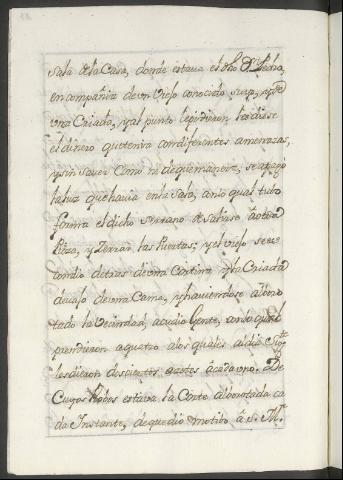 Sala de la Casa, donde estava el dho Dn. Pedro,
en compañia de un Viejo conocido suyo, y de
una Criada, y al punto le pidieron les diesse
el dinero que tenia con diferentes amenazas,
y sin saver como ni de que manera, se apagó
la luz que havia en la Sala, con lo qual tubo
forma el dicho Serrano de salirse à otra
Pieza, y Zerrar las Puertas; y el Viejo se es
condio detras de una Cortina y la Criada
devajo de una Cama, y haviendose alboro
tado la Vecindad, acudio Gente, con lo qual
prendieron a quatro a los quales al dia Sigte.
les dieron doscientos azotes à cada uno. De
Cuyos Robos estava la Corte alborotada ca
da Instante, de que dio motibo à S. M.